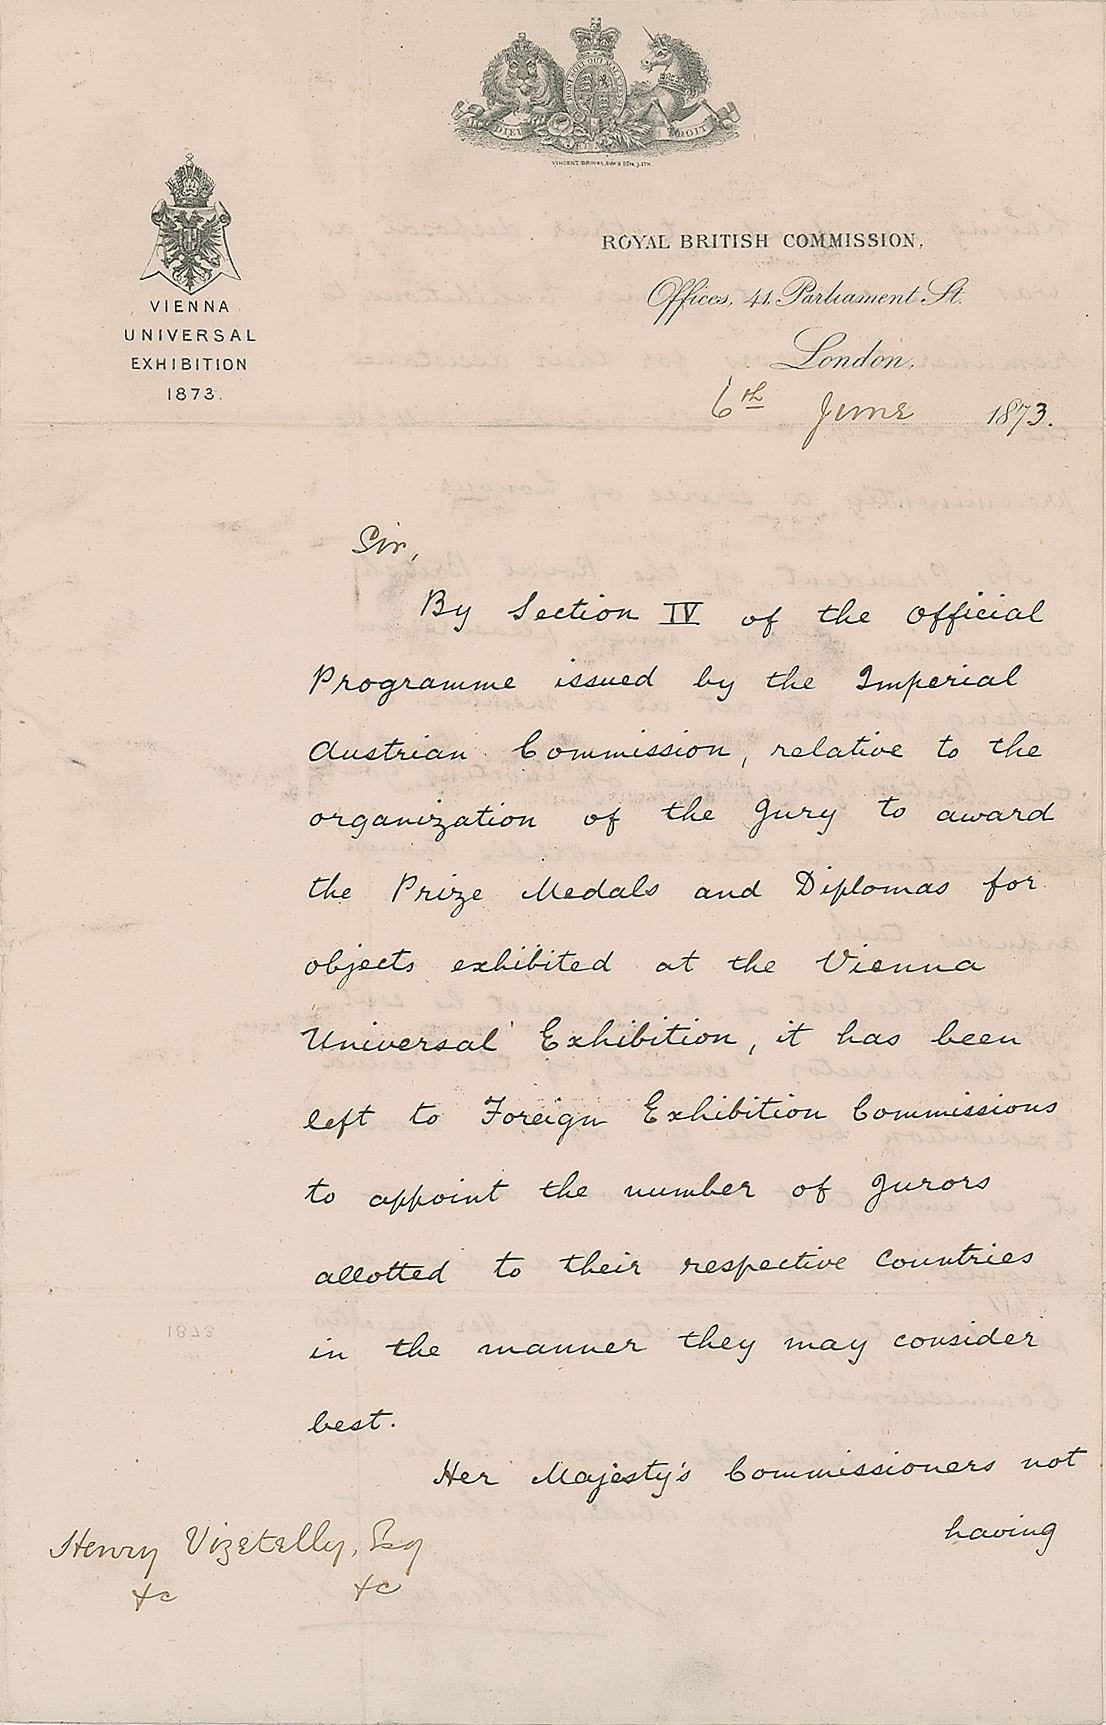 HONI SOIT QUI MAL Y
DIEU ET MON DROIT
VINCENT BROOKS, DAY & SON, LITH.
VIENNA
UNIVERSAL
EXHIBITION
1873.
ROYAL BRITISH COMMISSION,
Offices, 41, Parliament St.
London,
6th June 1873.
Sir,
By Section IV of the Official
Programme issued by the Imperial
Austrian Commission, relative to the
organization of the Jury to award
the Prize Medals and Diplomas for
objects exhibited at the Vienna
Universal Exhibition, it has been
left to Foreign Exhibition Commissions
to appoint the number of Jurors
allotted to their respective Countries
in the manner they may consider
best.
Her Majesty's Commissioners not
having
Henry Vizetelly, Esq
&c &c